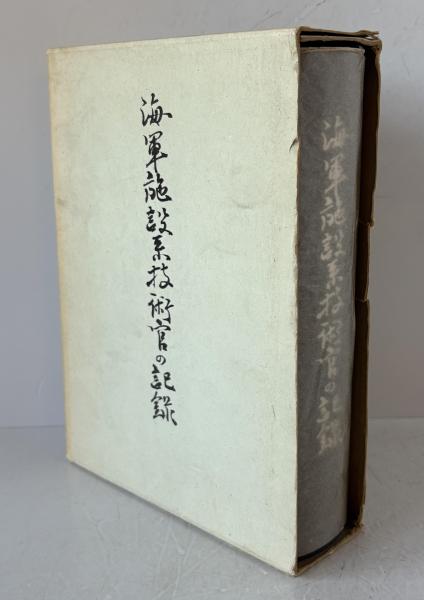 海軍施設系技術官の記録
海軍施設系技術官の記録